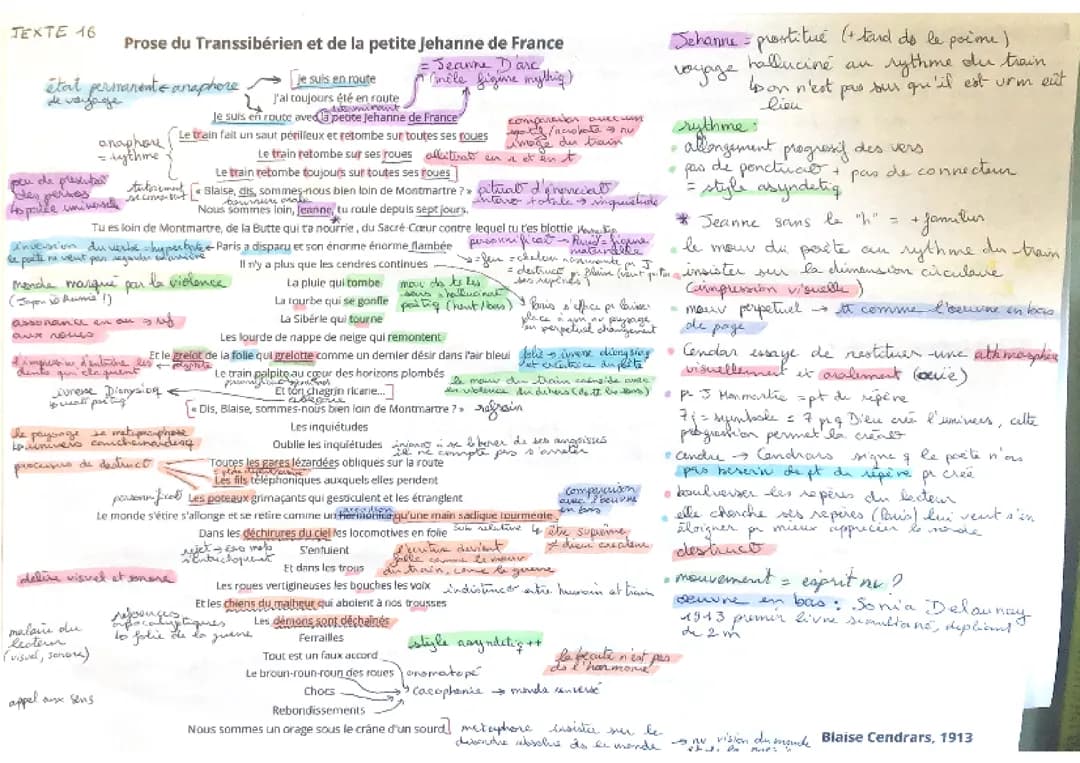 TEXTE 16
Prose du Transsibérien et de la petite Jehanne de France
= Jeanne D'arc
(mêle figure mythiq)
état permanent ← anaphore
de voyage
Je suis en route
J'ai toujours été en route
Je suis en route avec la petite Jehanne de France
anaphore
= rythme
Le train fait un saut périlleux et retombe sur toutes ses roues
Le train retombe sur ses roues
allitérat en r et en t
Le train retombe toujours sur toutes ses roues
comparaison avec un
/acrobate → nv
image du train
« Blaise, dis, sommes-nous bien loin de Montmartre ? »
intero totale → inquiétude
Nous sommes loin, Jeanne, tu roule depuis sept jours.
Tu es loin de Montmartre, de la Butte qui t'a nourrie, du Sacré-Cœur contre lequel tu t'es blottie
inversion du verbe
Paris a disparu et son énorme énorme flambée
personnificat → Paris = figure
maternelle
Il n'y a plus que les cendres continues
monde marqué par la violence
La pluie qui tombe
La tourbe qui se gonfle
La Sibérie qui tourne
Paris s'efface pr laisser
place à un nv paysage
en perpetuel changement
assonance en ou → ref
aux roues
Les lourde de nappe de neige qui remontent
Et le grelot de la folie qui grelotte comme un dernier désir dans l'air bleui
folie → ivresse dionysiaq
et créatrice du poète
Le train palpite au cœur des horizons plombés
le mouv du train coincide avec
ivresse Dionysiaq
Et ton chagrin ricane...
« Dis, Blaise, sommes-nous bien loin de Montmartre ? »
refrain
Les inquiétudes
Oublie les inquiétudes
injonct à se liberer de ses angoisses
il ne compte pas s'arreter
le paysage se métamorphose
univers cauchemardesq
processus de destruct
Toutes les gares lézardées obliques sur la route
Les fils téléphoniques auxquels elles pendent
personnificat
Les poteaux grimaçants qui gesticulent et les étranglent
comparaison
avec l'oeuvre
en bas
Le monde s'étire s'allonge et se retire comme un harmonica qu'une main sadique tourmente
sub relative
être suprême,
≠ dieu createur
Dans les déchirures du ciel les locomotives en folie
S'enfuient
Et dans les trous
l'ecriture devient
folle comme le mouv
du train, come la guerre
delire visuel et sonore
Les roues vertigineuses les bouches les voix
indistinct entre humain et train
Et les chiens du malheur qui aboient à nos trousses
Les démons sont déchaînés
apocalyptiques
la folie de la guerre
malaise du
lecteur
(visuel, sonore)
Ferrailles
style asyndetiq ++
Tout est un faux accord
la beauté n'est pas
ds l'harmonie
Le broun-roun-roun des roues
onomatopé
Chocs
cacophonie → monde renversé
appel aux sens
Rebondissements
Nous sommes un orage sous le crâne d'un sourd
metaphore insiste sur le
desordre absolue ds le monde
→ nv vision du monde
Jehanne = prostitué (+ tard ds le poème)
voyage halluciné au rythme du train
↳ on n'est pas sur qu'il est vrm eût
lieu
rythme :
allongement progressif des vers
pas de ponctuat + pas de connecteur
= style asyndétiq
* Jeanne sans le "h" = + familier
le mouv du poète au rythme du train
insister sur la dimension circulaire
(impression visuelle)
mouv perpetuel → tt comme l'oeuvre en bas
de page
Cendrar essaye de restituer une athmosphère
visuellement et oralement (ouïe)
pr J Montmartre = pt de repère
7j = symbole ≤ 7 pq Dieu créé l'univers, cette
progression permet la créat
cendre → Cendrars signe q le poète n'as
pas besoin de pt de repère pr créé
boulverser les repères du lecteur
elle cherche ses repères (Paris) lui veut s'en
éloigner pr mieux apprecier le monde
destruct
mouvement = esprit nv ?
oeuvre en bas : Sonia Delaunay
1913 premier livre simultané, depliant
de 2 m
Blaise Cendrars, 1913